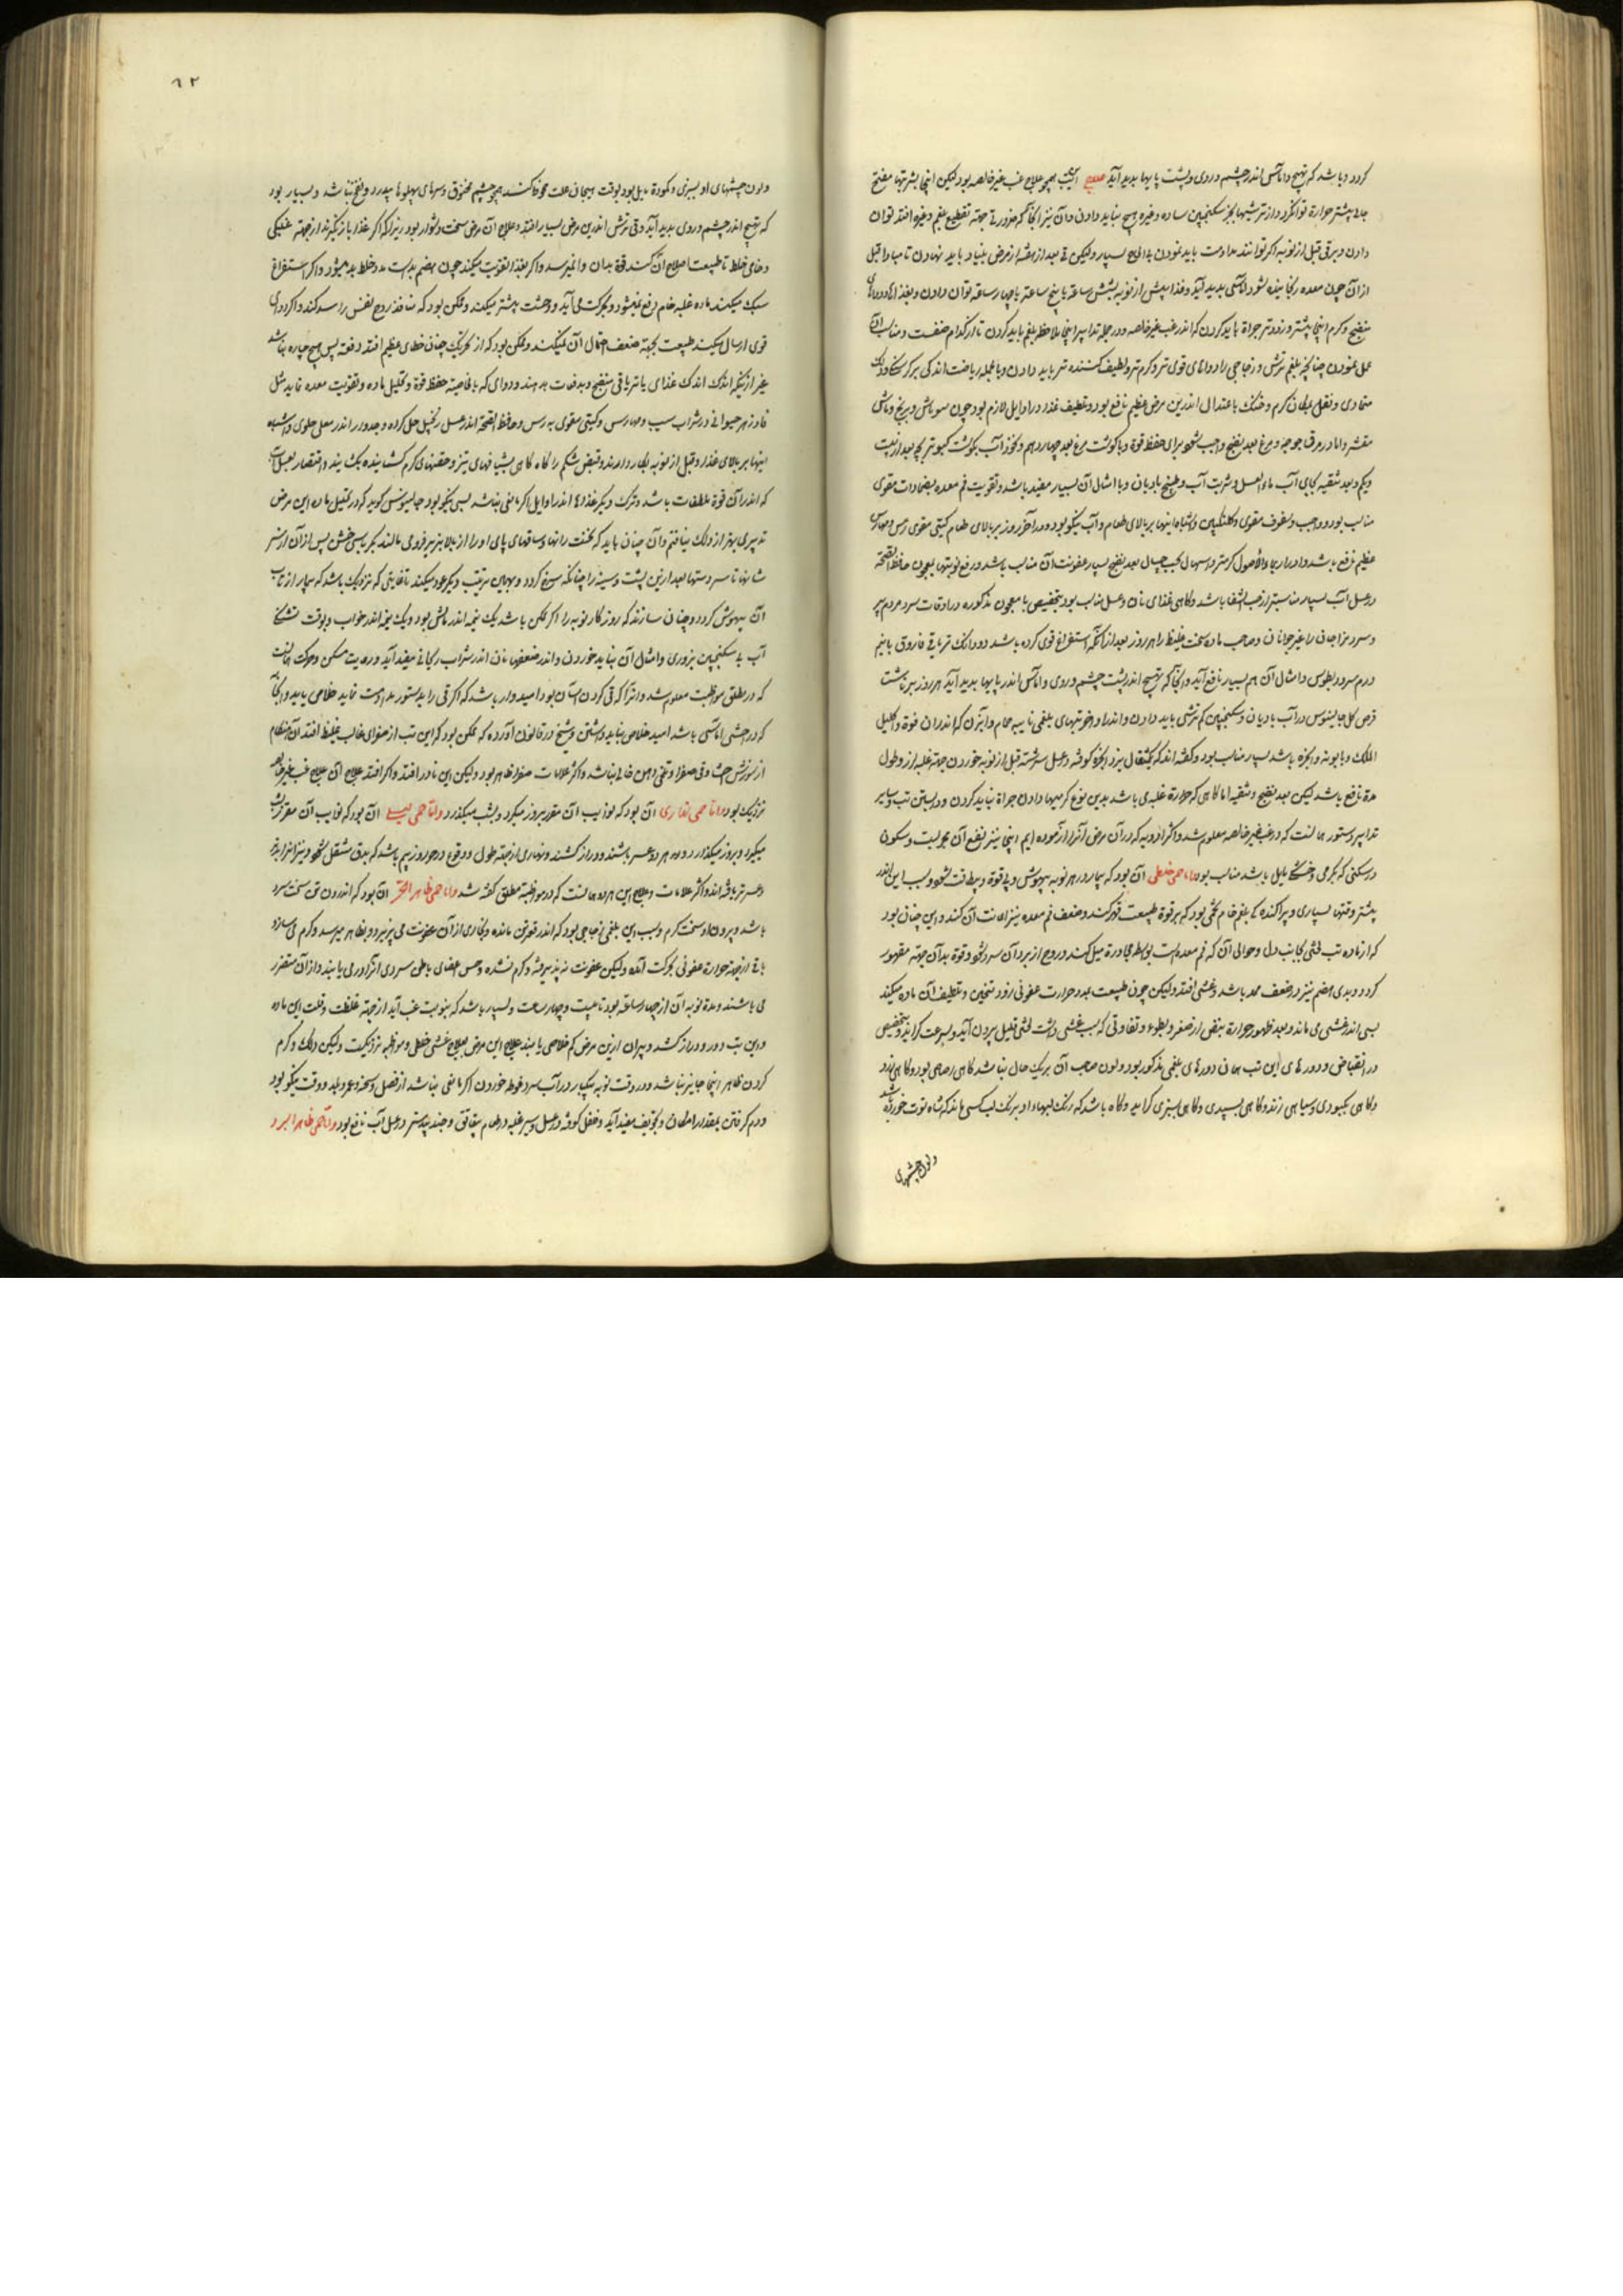 کردد و باشد که تهیج و اماس اندر چشم و روی و پشت پایها پدید آید علاج همچو علاج غب غیر خالصه بود لیکن اینجا بشربتها مفتح
حرارة نوان کرد و از ترشیها بجز سکنجبین ساده و غیره هیچ نباید دادن و آن نیز جهته تقطیع بلغم و غیره افتد توان
دادن و هر قی قبل از نوبه اکر توانند مداومت باید نمودن بسیار ولیکن بعد از هفته از مرض بنیاد باید نهادن تا مبادا قبل
از آن چون معده رنجانیده شود اماسی پدید آید و غذا پیش از نوبه بشش ساعة یا پنج ساعة یا چهار ساعة توان دادن و بغذا
منضج و کرم اینجا بیشتر و زودتر جراة باید کردن که اندر غب غیر خالصه و در جمله تدابیر اینجا ملاحظه بلغم باید کردن تا از کدام صنف است و مناسب آن
عمل نمودن چنانچه بلغم ترش و زجاجی را دواهای قوی تر و کرم تر و لطیف کننده تر باید دادن و بالجمله ریاضت اندکی بر کرسنکی
و نقل بمکان کرم و خشک باعتدال اندرین مرض عظیم نافع بود و تلطیف غذا در اوایل لازم بود چون ماش و برنج و ماش
مقشر و اما در مرق جوجه و مرغ بعد نضج واجب شود برای حفظ قوة و با کوشت مرغ بعد چهاردهم و نخود آب بکوشت کبوتر بچه بعد از بیست
و یکم و بعد تنقیه بجای آب ماء العسل و شربت آب و طبیخ بادیان و با امثال آن بسیار مفید باشد و تقویت فم معده بضمادات مقوی
مناسب بود و سفوف مقوی و کلنکبین و اشباه اینها بر بالای طعام و آب نیکو بود و در آخر روز بر بالای طعام کیتی مقوی
عظیم نافع باشد و ادرار بماء الاصول کرمتر و اسهال بحب بعد نضج بسیار عفونت آن مناسب باشد و رفع نوبتها بمعجون حافظ الصحة
در عسل آب بسیار مناسبتر از حب الشفا باشد و کاهی غذای نان و عسل مناسب بود بتخصیص با معجون مذکوره در اوقات سرد مردم پیر
و سرد مزاجان را غیر جوانان و صاحب ماده سخت غلیظ را هر روز بعد از آنکه استفراغ قوی کرده باشد دو دانک تریاق فاروق با نیم
درم و امثال آن هم بسیار نافع آید و آنجا که تهیج اندر پشت چشم و روی و اماس اندر پایها پدید آید هر روز بر ناشتا
قرص کل جالینوس در آب بادیان و سکنجبین کم ترشی باید دادن و اندر اواخر تبهای بلغمی حمام و آبزن که اندر آن قوة اکلیل
الملک و بابونه باشد بسیار مناسب بود و کفته اند که یکمثقال بزر انجره کوفته و بعسل سرشته قبل از نوبه خوردن جهة غلبه لرز و طول
مدة نافع باشد لیکن بعد نضج و تنقیه اما کاهی که حرارة غلبه باشد بدین نوع کرمیها دادن جراة نباید کردن و در بستن تب و سایر
تدابیر دستور همانست که در غب غیر خالصه معلوم شد و اکثر ادویه که در آن مرض آنرا آزموده ایم اینجا نیز نفع آن مجربست و سکون
در مسکنی که بکرمی و خشکی مایل باشد مناسب بود و اما حمی غشیی آن بود که بیمار در هر نوبه بیهوش و بی قوة و بیطاقت شود و سبب این اندر
بیشتر وقتها بسیاری و پراکنده کی بلغم خام فجی بود که بر قوة طبیعت قهر کند و ضعف فم معده نیز اعانت آن کند و این چنان بود
که از ماده تب بجانب دل و حوالی آن که فم معده است بواسطه مجاورة میل کند و روح از برد آن سرد شود و قوة بدآن جهته مقهور
کردد و بدی هضم نیز در ضعف ممد باشد و غشی افتد ولیکن چون طبیعت بمدد حرارت عفونی زود تسخین و تلطیف آن ماده میکند
بسی اندر غشی نمی ماند و بعد ظهور حرارة نبض از صغر و بطوء و تفاوتی که بسبب غشی داشت قلیل بیرون آید و بسرعت کراید و بتخصیص
در انقباض و دورهای این تب همان دورهای بلغمی مذکور بود و لون صاحب آن بریک حال نباشد کاهی رصاصی بود و کاهی زرد
و کاهی بکبودی و سیاهی زند و کاهی بسپیدی و کاهی بسبزی کراید و کاه باشد که رنک لبهاء او برنک لب کسی ماند که شاه توت خورده باشد
و لون چشمهای
٦٢
و لون چشمهای او بسبزی و کمودة مایل بود و بوقت هیجان علت همچو چشم مخنوق و سرهای پهلوها بدرد و نفخ باشد و بسیار بود
که تهیج اندر چشم و روی پدید آید و قی ترش اندرین مرض بسیار افتد و علاج آن مرض سخت دشوار بود زیرا که اکر غذا باز کیرند از جهته غلیظی
و خامی خلط تا طبیعت اصلاح آن کند قوة بدان وفا نمیرسد و اکر بغذا تقویت میکند چون هضم بدست مدد خلط بد میشود و اکر استفراغ
سبک میکند ماده غلبه خام دفع نمیشود و بحرکت می آید و وحشت بیشتر میکند و ممکن بود که منافذ روح نفس را سد کند و اکر دوای
قوی ارسال میکند طبیعت بجهته ضعف احتمال آن نمیکند و ممکن بود که از تحریک چنان خطای عظیم افتد دفعة پس هیچ چاره نباشد
غیر از آنکه اندک اندک غذای با تریاقی منضج و بدفعات بدهند و دوای که بالخاصیة حفظ قوة و تحلیل ماده و تقویت معده نماید مثل
فادزهر حیوانی در شراب سیب و کیتی مقوی و حافظ الصحة اندر عسل زنجبیل حل کرده و جدوار اندر معلی حلوی و اشباه
اینها بر بالای غذا و قبل از نوبه بکار دارند و قبض شکم را کاه کاهی بشیافهای تیز و حقنهای کرم کشاینده بکشایند و اقتصار بعسل آب
که اندر آن قوة ملطفات باشد و ترک دیکر غذاها اندر اوایل اکر مانعی نباشد بسی نیکو بود جالینوس کوید که در تحلیل ماده این مرض
تدبیری بهتر از دلک نیافتم و آن چنان باید که نخست رانها و ساقهای پای او را از بالا بزیر فرو می مالند بکرباسی خشن پس از آن از سر
شانها تا سر دستها بعد ازین پشت و سینه را چنانکه سرخ کردد و بهمین ترتیب دیکر عود میکند تا بغایتی که نزدیک باشد که بیمار از تاب
آن بیهوش کردد و چنان سازند که روزکار نوبه را اکر ممکن باشد یک نیمه اندر مالش بود و یک نیمه اندر خواب و بوقت تشنکی
آب با سکنجبین بزوری و امثال آن بباید خوردن و اندر ضعفها نان اندر شراب ریحانی مفید آید و رعایت مسکن و حرکت همانست
که در مطلق مواظبه معلوم شد و آنرا که قی کردن آسان بود امیدوار باشد که اکر قی را بدستور مداومت نماید خلاصی یابد و آنجا
که در احشا اماسی باشد امید خلاص نباید داشتن و شیخ در قانون آورده که ممکن بود که این تب از صفرای غالب غلیظ افتد
از سوزش احشا و قی صفرا و تلخی دهن خالی نباشد و اکثر علامات صفرا ظاهر بود ولیکن این نادر افتد و اکر افتد علاج آن علاج غب غیر خالصه
نزدیک بود و اما حمی نهاری آن بود که نوایب آن مقرر بروز میکیرد و بشب میکذرد و اما حمی لیلی آن بود که نوایب آن مقرر بشب
میکیرد و بروز میکذرد و هر دو عسر باشند و دراز کشند و نهاری از جهته طول و وقوع در هر روز بیم باشد که بدق منتقل شود و نیز آنرا بدتر
و عسرتر یافته اند و اکثر علامات و علاج این هردو همانست که در مواظبه مطلق کفته شد و اما حمی ظاهر الحر آن بود که اندرون تن سخت سرد
باشد و بیرون او سخت کرم و سبب این بلغمی زجاجی بود که اندر قعر تن مانده و بخاری از آن عفونت می پذیرد و بظاهر میرسد و کرم میسازد
باقی از جهته حرارة عفونی بحرکت آمده ولیکن عفونت نپذیرفته و کرم نشده و حس اعضای باطن سردی آنرا در می یابند و از آن متضرر
می باشند و مدة نوبه آن از چهار ساعة بود تا بیست و چهار ساعت و بسیار باشد که بنوبت غب آید از جهته غلظت و قلت این ماده
و این تب دور و دراز کشد و پیران ازین مرض کم خلاصی یابند علاج این مرض بعلاج غشیی خلطی و مواظبه نزدیکست ولیکن دلک و کرم
کردن ظاهر اینجا جایز نباشد و در وقت نوبه بیکبار در آب سرد غوطه خوردن اکر مانعی نباشد از فصل و سحنه و عمر و بلد و وقت نیکو بود
و دم کرفتن بمقدار امکان و بتخویف مفید آید و فلفل کوفته در عسل و سیر غلبه در طعام و جندبیدستر در عسل آب نافع بود و اما حمی ظاهر البرد